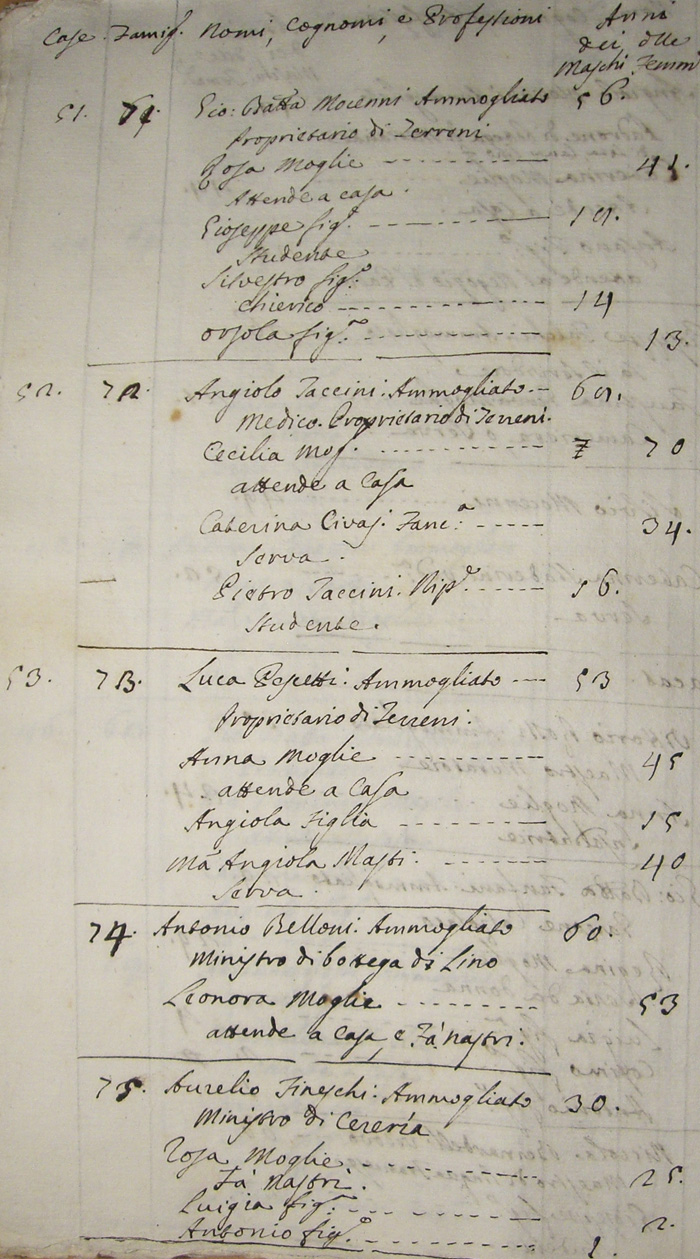 Case. Famigᵉ. Nomi, Cognomi, e Professioni Anni
dei delle
Maschi Femm
51. 71. Gio: Batta Mocenni Ammogliato 56.
Proprietario di Terreni
Rosa Moglie ---------- 41.
Attende a casa.
Gioseppe figº. ---------- 19.
Studente
Silvestro figº:
Chierico ---------- 14
Orsola figª. ---------- 13.
52. 72. Angiolo Taccini: Ammogliato.-- 69.
Medico. Proprietario di Terreni.
Cecilia Mog. ---------- 70
attende a Casa
Caterina Civaj: Fanc:ª ----- 34.
Serva.
Pietro Taccini. Nipᵉ. ----- 16.
Studente.
53. 73. Luca Pepetti: Ammogliato --- 53
Proprietario di Terreni.
Anna Moglie ---------- 45
attende a Casa
Angiola Figlia ---------- 15
Mª Angiola Masti: ------- 40
Serva.
74. Antonio Belloni: Ammogliato 60.
Ministro di bottega di Lino
Leonora Moglie --------- 53
attende a Casa, e Fà nastri.
75. Aurelio Fineschi: Ammogliato 30.
Ministro di Cereria
Rosa Moglie. ---------- 25.
Fà Nastri.
Luigia figª. ---------- 2.
Antonio figº. ---------- 1